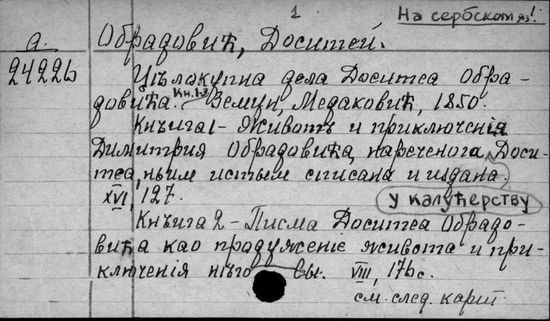 1
На сербском яз!
а.
24226
Обрадовић, Доситей.
Цѣлокупна дела Доситеа Обра-
довића. Кн.1-3 Земун, Медаковић, 1850.
Књига 1 - Животъ и приключенія
Димитрия Обрадовића, нареченога Доси-
теа, ньим истым списана и издана.
у калуђерству
XVI, 127.
Књига 2 - Писма Доситеа Обрадо-
вића као продуженіе живота и при-
ключенія нѣго вы. VIII, 176 с.
см. след. карт.